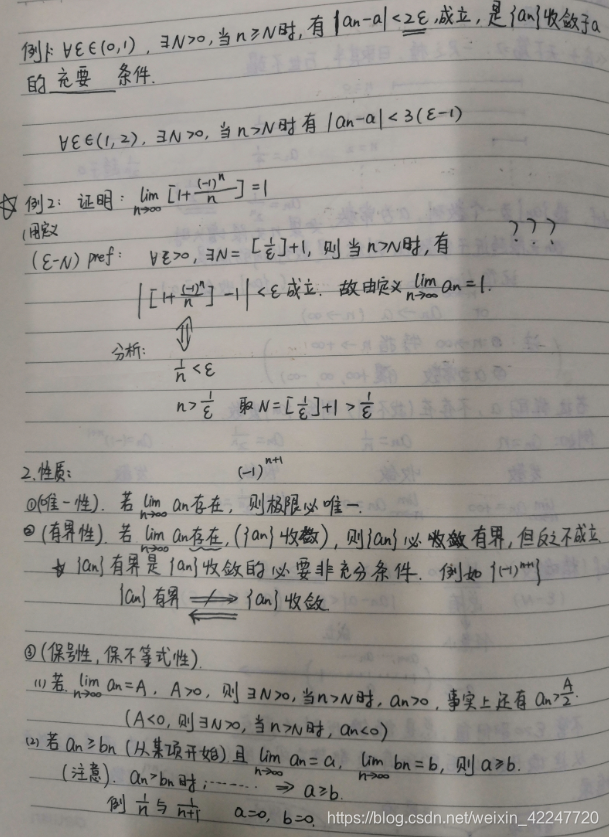 例1: ∀ε∈(0,1), ∃N>0, 当n≥N时, 有|an-a|<2ε成立, 是{an}收敛于a
的 充要 条件.
∀ε∈(1,2), ∃N>0, 当n>N时有|an-a|<3(ε-1)
☆例2: 证明: lim n→∞ [1+(-1)^n/n]=1
(用定义
(ε-N) pref: ∀ε>0, ∃N=[1/ε]+1, 则当n>N时, 有 ? ? ?
|[1+(-1)^n/n]-1|<ε成立. 故由定义 lim n→∞ an=1.
⇕
分析:
1/n<ε
n>1/ε 取N=[1/ε]+1>1/ε
2.性质: (-1)^{n+1}
①(唯一性). 若 lim n→∞ an存在, 则极限必唯一.
②(有界性). 若 lim n→∞ an存在, ({an}收敛), 则{an}必有界, 但反之不成立
☆ {an}有界是{an}收敛的必要非充分条件. 例如{(-1)^{n+1}}
{an}有界 ⇏ ⇐ {an}收敛.
③(保号性, 保不等式性).
(1)若 lim n→∞ an=A, A>0, 则∃N>0, 当n>N时, an>0, 事实上还有an>A/2.
(A<0, 则∃N>0, 当n>N时, an<0)
(2)若an≥bn (从某项开始) 且 lim n→∞ an=a, lim n→∞ bn=b, 则a≥b.
(注意). an>bn时, …… ⇒ a≥b.
例 1/n 与 1/(n+1) a=0, b=0.
https://blog.csdn.net/weixin_42247720